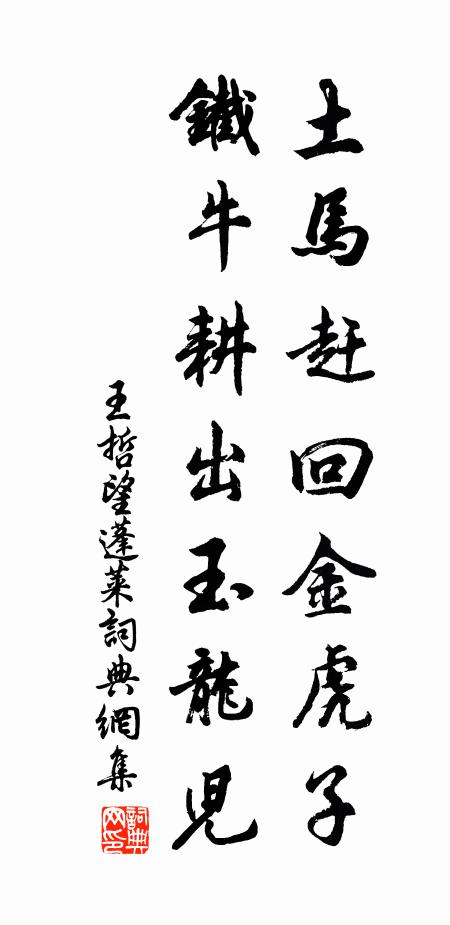 土馬赶回金虎子
鐵牛耕出玉龍児
王哲望蓬萊詞典網集
詞典网印